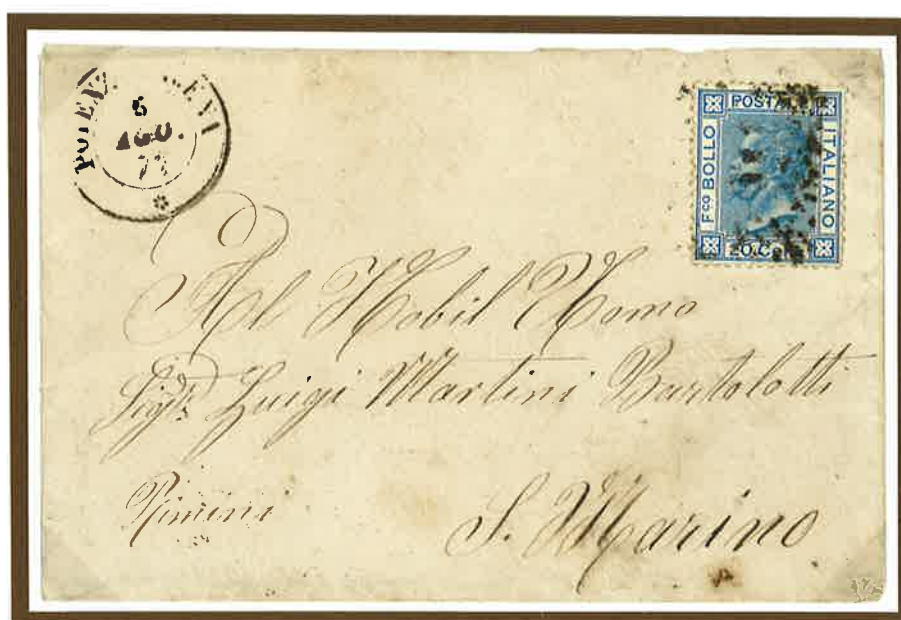 5
AGO.
POSTALE
Fco BOLLO
ITALIANO
Al Nobil Uomo
Sigr. Luigi Martini Bartolotti
Rimini
S. Marino